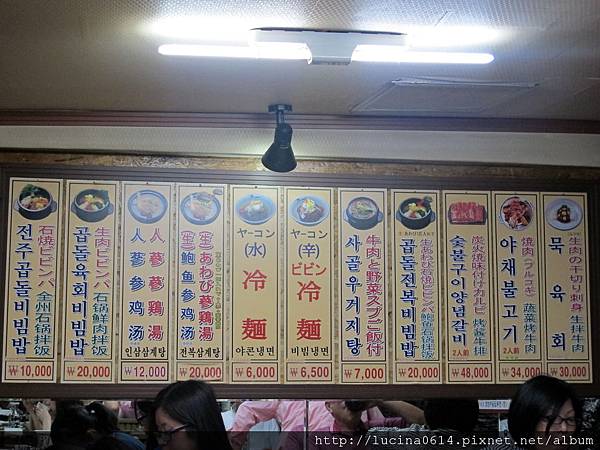 石焼ビビンバ
全州石锅拌饭
전주곱돌비빔밥
₩ 10,000
生肉ビビンバ
石锅鲜肉拌饭
곱돌육회비빔밥
₩ 20,000
人蔘参鶏湯
人蔘参鸡汤
인삼삼계탕
₩ 12,000
(生)あわび蔘鶏湯
(生)鲍鱼参鸡汤
전복삼계탕
₩ 20,000
ヤーコン
(水)
冷麺
야콘냉면
₩ 6,000
ヤーコン
(辛)
ビビン
冷麺
비빔냉면
₩ 6,500
牛肉と野菜スプご飯付
사골우거지탕
₩ 7,000
生あわび石焼ビビンバ
鲍鱼石锅拌饭
곱돌전복비빔밥
₩ 20,000
炭火焼味付けカルビ
烤袋牛排
숯불구이양념갈비
2人前
₩ 48,000
焼肉(プルコギ)
蔬菜烤牛肉
야채불고기
2人前
₩ 34,000
生肉の千切り刺身
生拌牛肉
목육회
₩ 30,000
http://lucina0614.pixnet.net/album